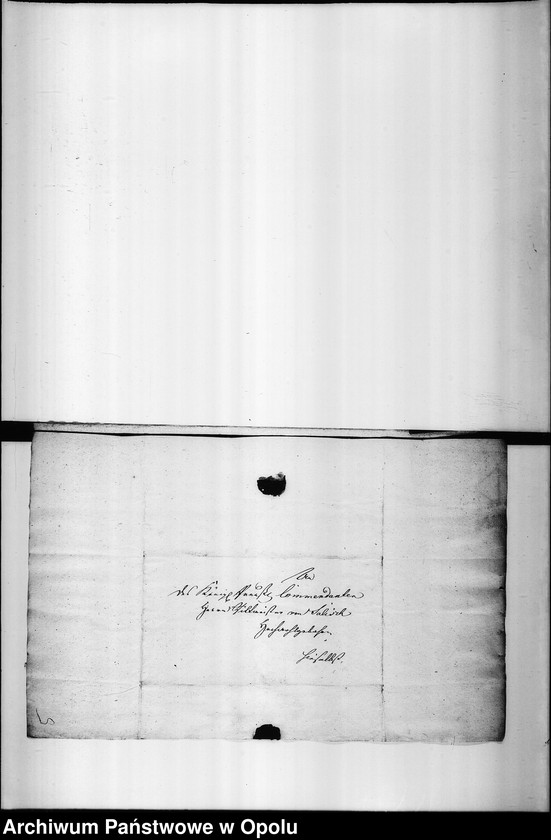 An
des Königl. Preuß. Commendanten
Herrn Rittmeister von Salisch
Hochwohlgeboren
hieselbst.
Archiwum Państwowe w Opolu